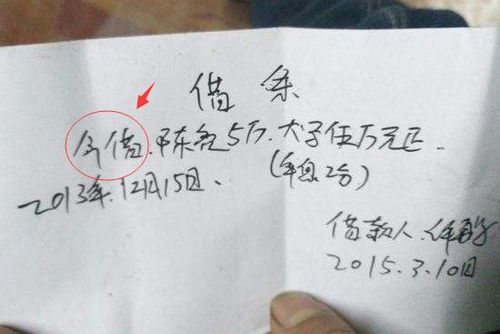 借条
今借.陈名5万.大字伍万元正.
(年息2分)
2013年.12月15日、
借款人.
2015.3.10日